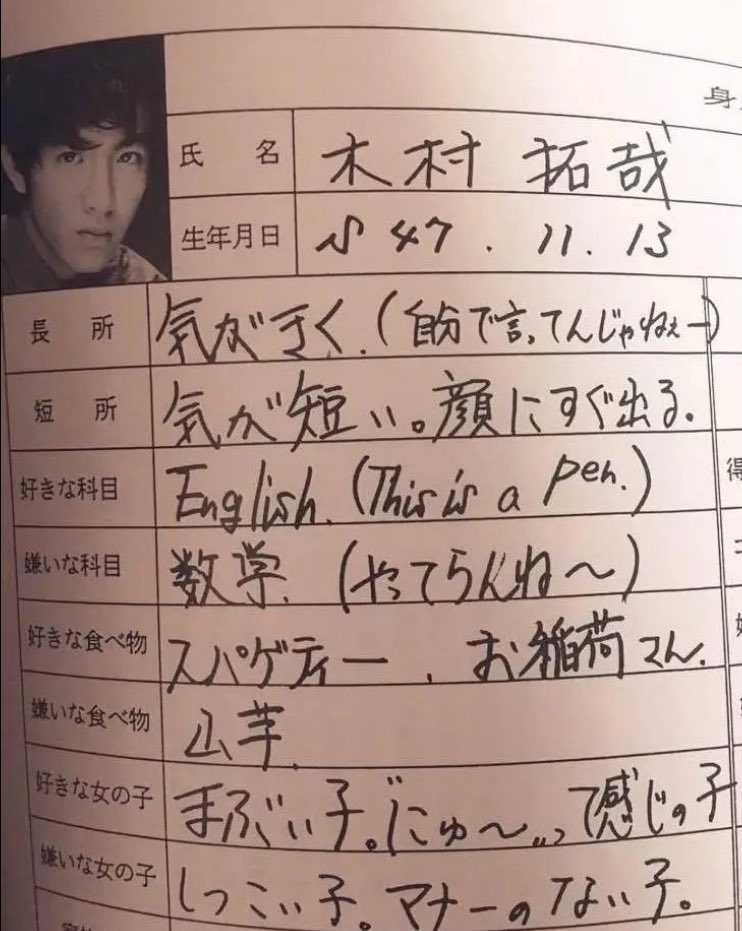 身
氏 名 木村 拓哉
生年月日 S47.11.13
長所 気がきく.(自分で言ってんじゃねぇー)
短所 気が短い。顔にすぐ出る.
好きな科目 English.(This is a pen.)
嫌いな科目 数学.(やってらんね〜)
好きな食べ物 スパゲティー.お稲荷さん.
嫌いな食べ物 山芋.
好きな女の子 まぶい子。"にゅ〜"って感じの子
嫌いな女の子 しつこい子。マナーのない子。
得